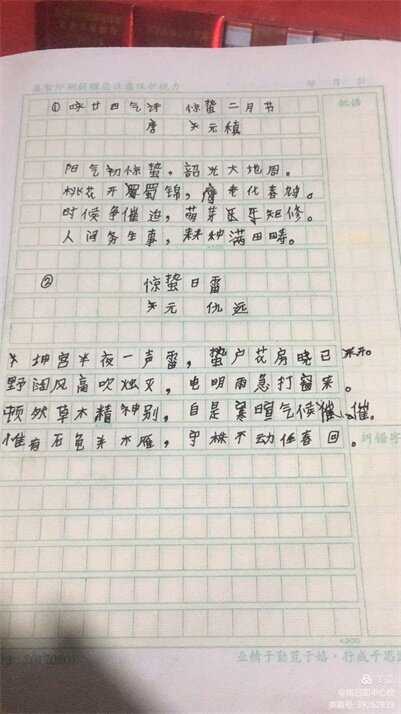 是智印刷提醒您注意保护视力 年 月 日
① 咏廿四气诗 惊蛰二月节
批语
唐 元稹
阳气初惊蛰，韶光大地周。
桃花开蜀锦，鹰老化春鸠。
时候争催迫，萌芽互矩修。
人间务生事，耕种满田畴。
② 惊蛰日雷
元 仇远
坤宫半夜一声雷，蛰户花房晓已开。
野阔风高吹烛灭，电明雨急打窗来。
顿然草木精神别，自是寒暄气候催。
惟有石龟并木雁，守株不动任春回。
纠错字
业精于勤荒于嬉·行成于思
美篇号: 39262838